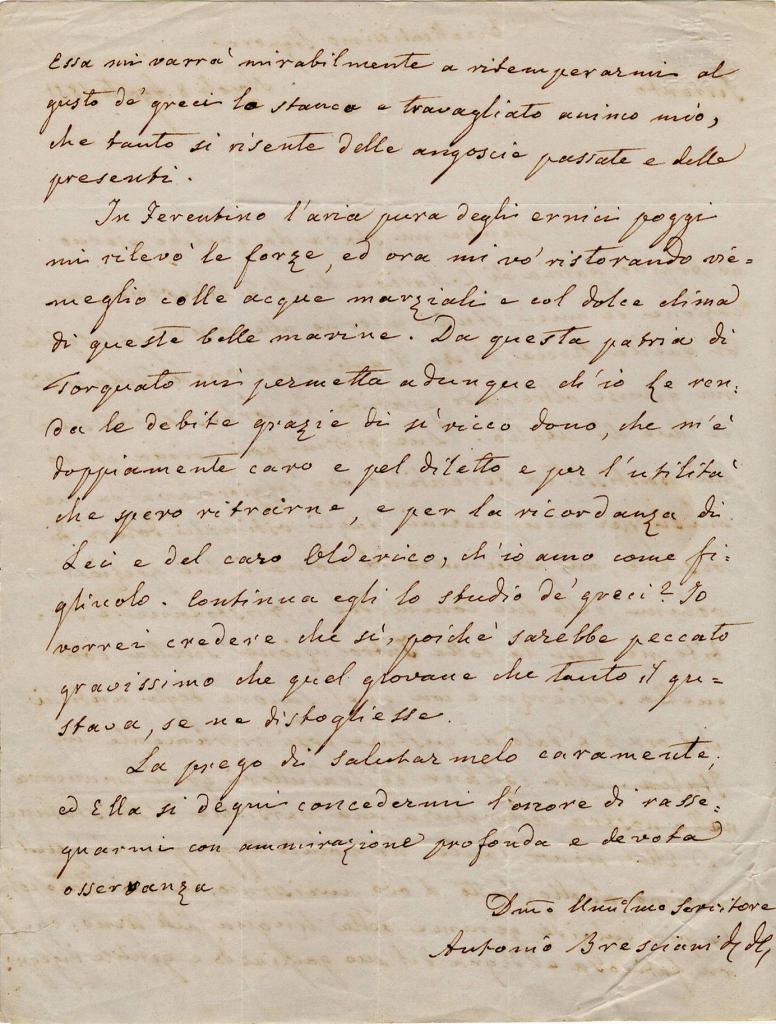 Essa mi varrà mirabilmente a ritemperarmi al
gusto de' greci lo stanco e travagliato animo mio,
che tanto si risente delle angoscie passate e delle
presenti.
In Ferentino l'aria pura degli ernici poggi
mi rilevò le forze, ed ora mi vò ristorando vie=
meglio colle acque marziali e col dolce clima
di queste belle marine. Da questa patria di
Torquato mi permetta adunque ch'io Le ren:
da le debite grazie di sì ricco dono, che m'è
doppiamente caro e pel diletto e per l'utilità
che spero ritrarne, e per la ricordanza di
Lei e del caro Olderico, ch'io amo come fi:
gliuolo. Continua egli lo studio de' greci? Io
vorrei credere che sì, poichè sarebbe peccato
gravissimo che quel giovane che tanto il gu=
stava, se ne distogliesse.
La prego di salutarmelo caramente,
ed Ella si degni concedermi l'onore di rasse:
gnarmi con ammirazione profonda e devota
osservanza
Dmo Umilmo Servitore
Antonio Bresciani